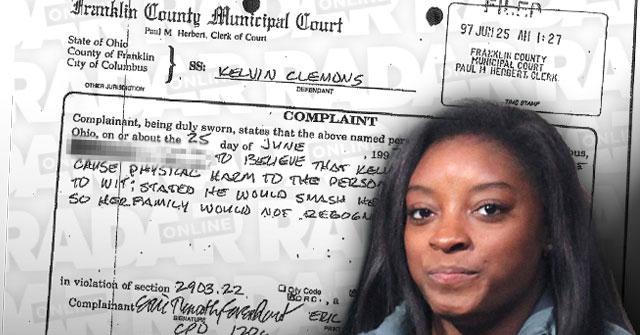 Franklin County Municipal Court
Paul M. Herbert, Clerk of Court
FILED
97 JUN 25 AM 1:27
FRANKLIN COUNTY
MUNICIPAL COURT
PAUL M HERBERT, CLERK
TIME STAMP
State of Ohio
County of Franklin
City of Columbus
} SS: KELVIN CLEMONS
OTHER JURISDICTION
DEFENDANT
COMPLAINT
Complainant, being duly sworn, states that the above named per
Ohio, on or about the 25 day of JUNE, 199
TO BELIEVE THAT KEL
CAUSE PHYSICAL HARM TO THE PERSO
TO WIT: STATED HE WOULD SMASH HE
SO HER FAMILY WOULD NOT RECOGN
in violation of section 2903.22
City Code
O.R.C., a
Complainant
ERIC
SIGNATURE
CPD
RADAR
ONLINE